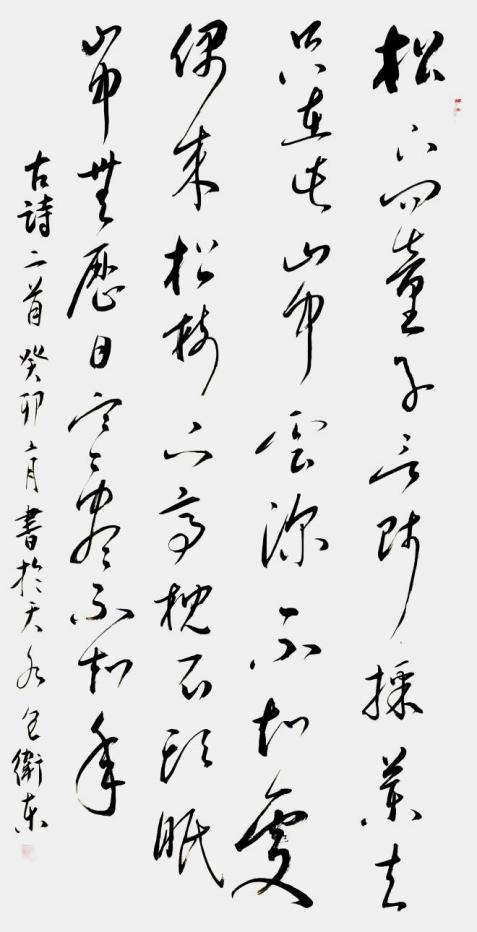 松下問童子言師採藥去
只在此山中雲深不知處
偶來松樹下高枕石頭眠
山中無歷日寒盡不知年
古詩二首癸卯二月書於天水衛東